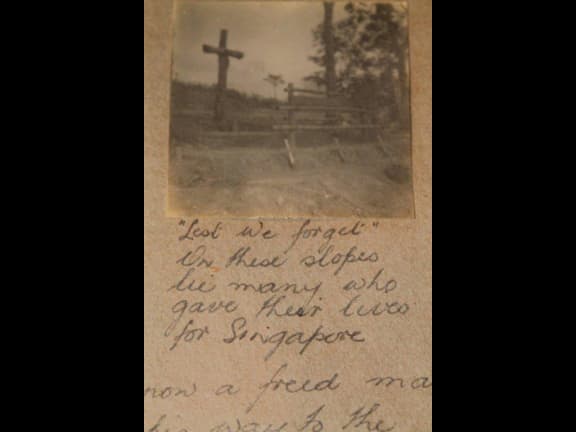 "Lest we forget"
On these slopes
lie many who
gave their lives
for Singapore
now a freed ma
his way to the